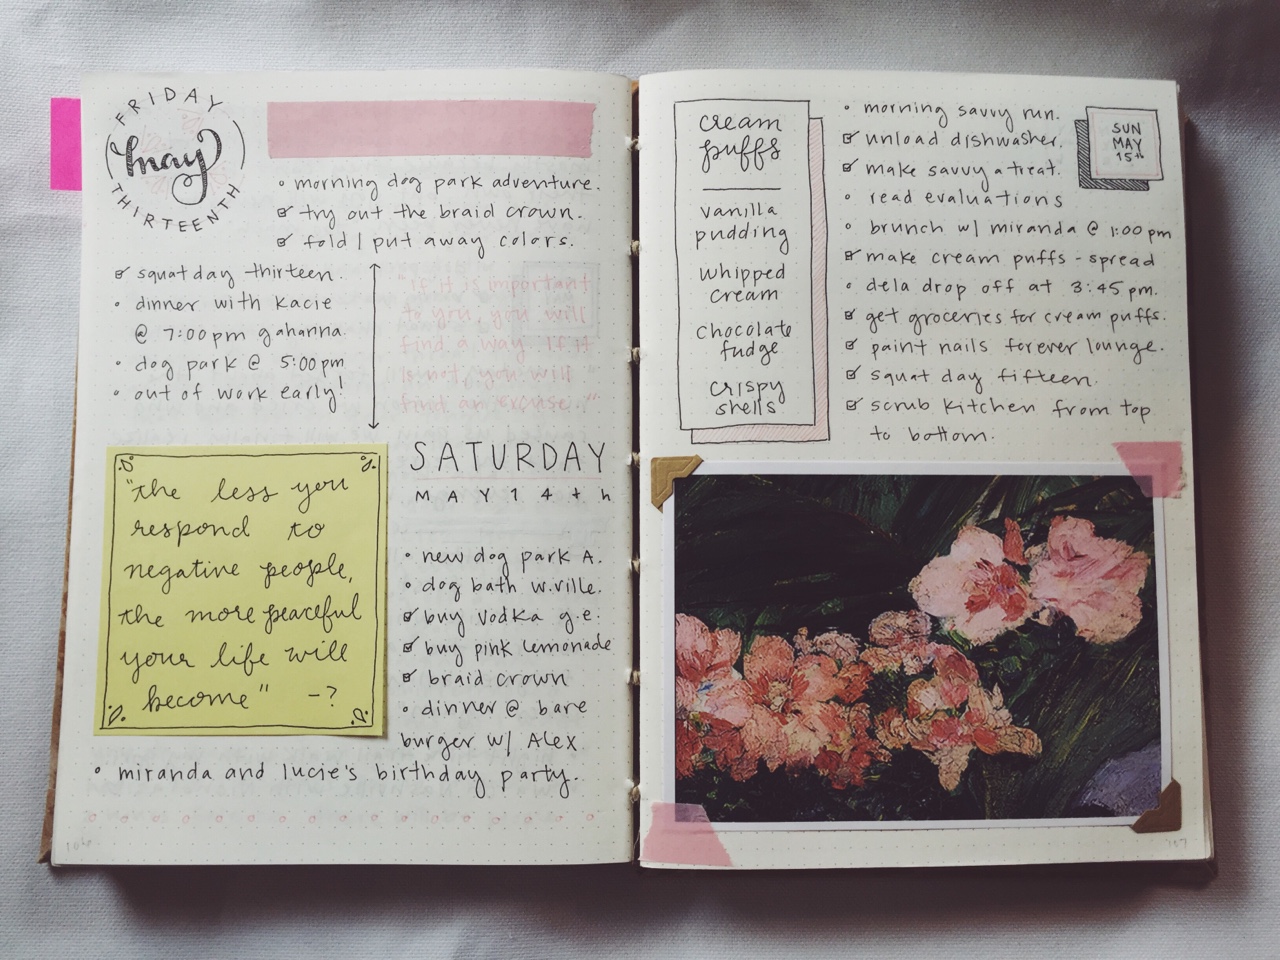 FRIDAY
may
THIRTEENTH
• morning dog park adventure.
☑ try out the braid crown.
☑ fold / put away colors.
☑ squat day thirteen.
• dinner with kacie
@ 7:00pm gahanna.
• dog park @ 5:00pm
• out of work early!
"if it is important
to you, you will
find a way. If it
is not, you will
find an excuse."
"the less you
respond to
negative people,
the more peaceful
your life will
become" -?
SATURDAY
MAY 14th
• new dog park A.
• dog bath w.ville.
☑ buy vodka g.e.
☑ buy pink lemonade
☑ braid crown
• dinner @ bare
burger w/ Alex
• miranda and lucie's birthday party.
106
cream
puffs
vanilla
pudding
whipped
cream
chocolate
fudge
crispy
shells
SUN
MAY
15th
• morning savvy run.
☑ unload dishwasher.
☑ make savvy a treat.
• read evaluations
• brunch w/ miranda @ 1:00pm
☑ make cream puffs - spread
• dela drop off at 3:45pm.
☑ get groceries for cream puffs.
☑ paint nails forever lounge.
☑ squat day fifteen.
☑ scrub kitchen from top
to bottom.
107